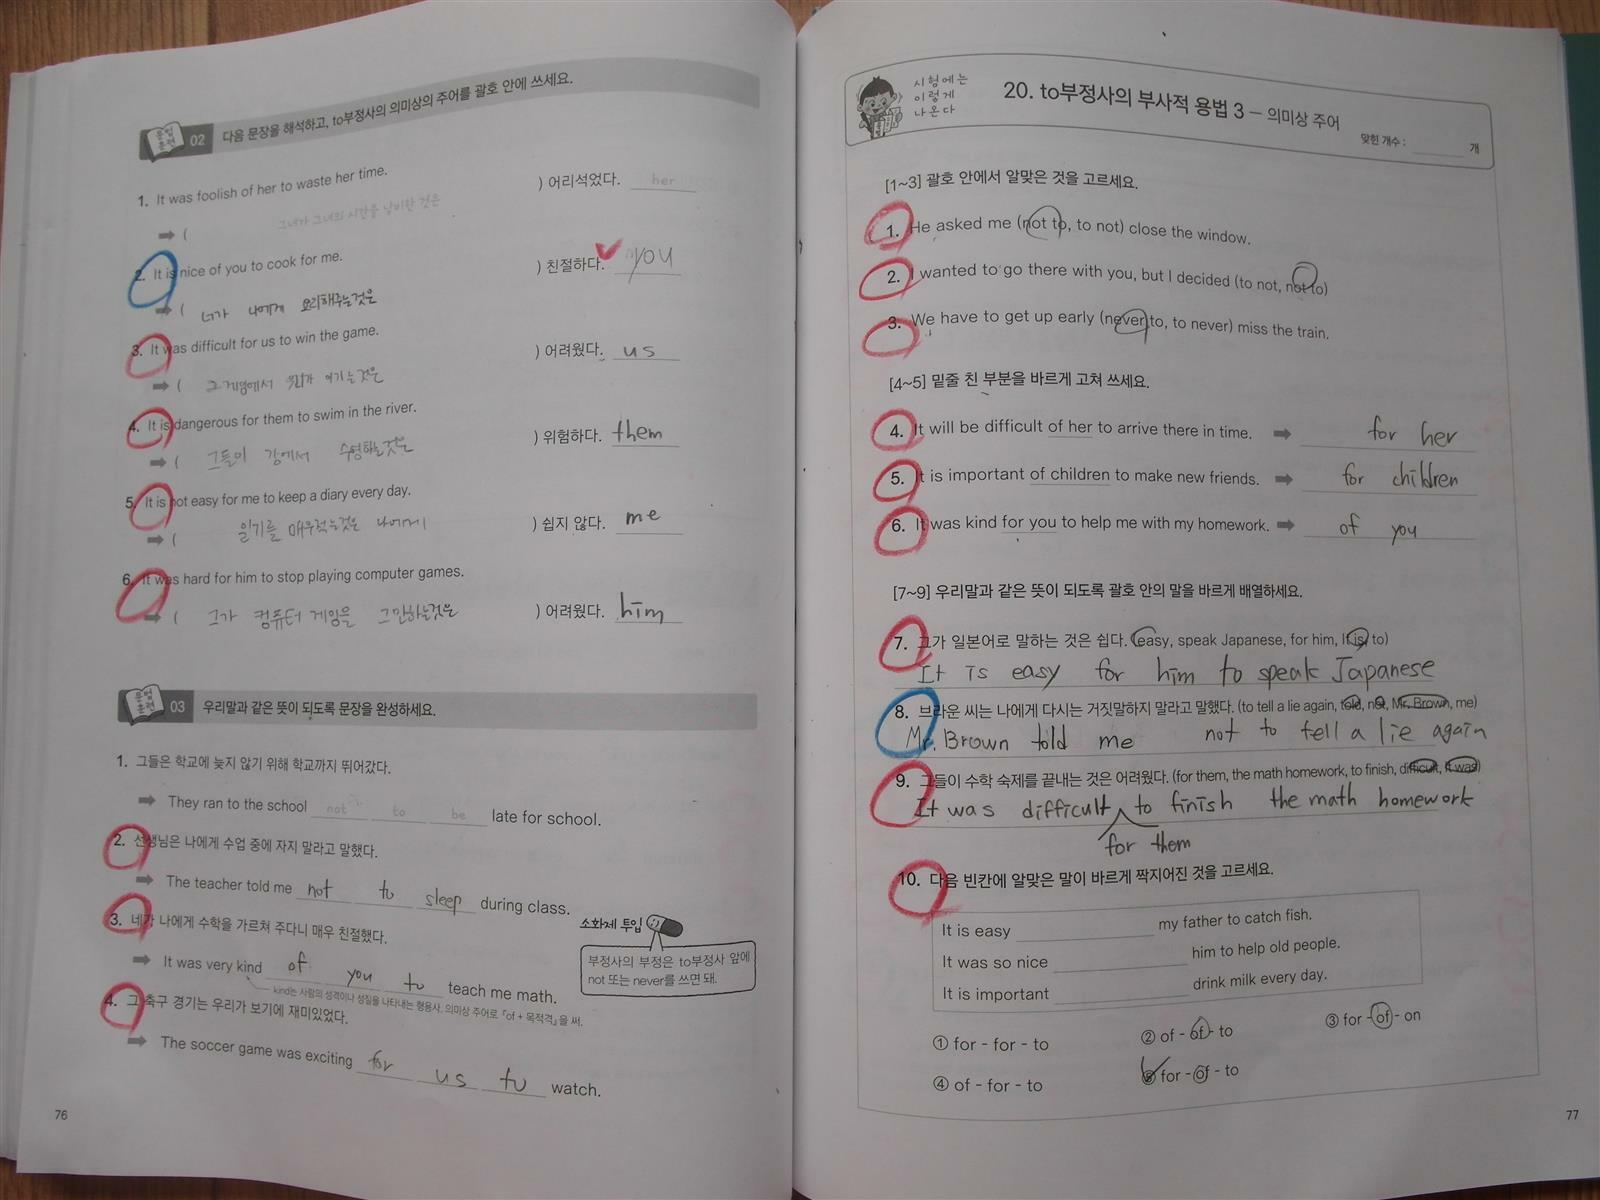 문법 훈련 02 다음 문장을 해석하고, to부정사의 의미상의 주어를 괄호 안에 쓰세요.
1. It was foolish of her to waste her time.
➡ ( 그녀가 그녀의 시간을 낭비한 것은 ) 어리석었다. her
2. It is nice of you to cook for me.
➡ ( 너가 나에게 요리해주는것은 ) 친절하다. you
3. It was difficult for us to win the game.
➡ ( 그 게임에서 우리가 이기는것은 ) 어려웠다. us
4. It is dangerous for them to swim in the river.
➡ ( 그들이 강에서 수영하는것은 ) 위험하다. them
5. It is not easy for me to keep a diary every day.
➡ ( 일기를 매우적는것은 나에게 ) 쉽지 않다. me
6. It was hard for him to stop playing computer games.
➡ ( 그가 컴퓨터 게임을 그만하는것은 ) 어려웠다. him
문법 훈련 03 우리말과 같은 뜻이 되도록 문장을 완성하세요.
1. 그들은 학교에 늦지 않기 위해 학교까지 뛰어갔다.
➡ They ran to the school not to be late for school.
2. 선생님은 나에게 수업 중에 자지 말라고 말했다.
➡ The teacher told me not to sleep during class.
3. 네가 나에게 수학을 가르쳐 주다니 매우 친절했다.
➡ It was very kind of you to teach me math.
kind는 사람의 성격이나 성질을 나타내는 형용사. 의미상 주어로 『of + 목적격』을 써.
4. 그 축구 경기는 우리가 보기에 재미있었다.
➡ The soccer game was exciting for us to watch.
소화제 투입
부정사의 부정은 to부정사 앞에
not 또는 never를 쓰면 돼.
76
시험에는
이렇게
나온다
20. to부정사의 부사적 용법 3 – 의미상 주어
맞힌 개수 : 개
[1~3] 괄호 안에서 알맞은 것을 고르세요.
1. He asked me (not to, to not) close the window.
2. I wanted to go there with you, but I decided (to not, not to)
3. We have to get up early (never to, to never) miss the train.
[4~5] 밑줄 친 부분을 바르게 고쳐 쓰세요.
4. It will be difficult of her to arrive there in time. ➡ for her
5. It is important of children to make new friends. ➡ for children
6. It was kind for you to help me with my homework. ➡ of you
[7~9] 우리말과 같은 뜻이 되도록 괄호 안의 말을 바르게 배열하세요.
7. 그가 일본어로 말하는 것은 쉽다. (easy, speak Japanese, for him, It is, to)
It is easy for him to speak Japanese
8. 브라운 씨는 나에게 다시는 거짓말하지 말라고 말했다. (to tell a lie again, told, not, Mr. Brown, me)
Mr. Brown told me not to tell a lie again
9. 그들이 수학 숙제를 끝내는 것은 어려웠다. (for them, the math homework, to finish, difficult, it was)
It was difficult to finish the math homework
for them
10. 다음 빈칸에 알맞은 말이 바르게 짝지어진 것을 고르세요.
It is easy my father to catch fish.
It was so nice him to help old people.
It is important drink milk every day.
① for - for - to ② of - of - to ③ for - of - on
④ of - for - to ⑤ for - of - to
77